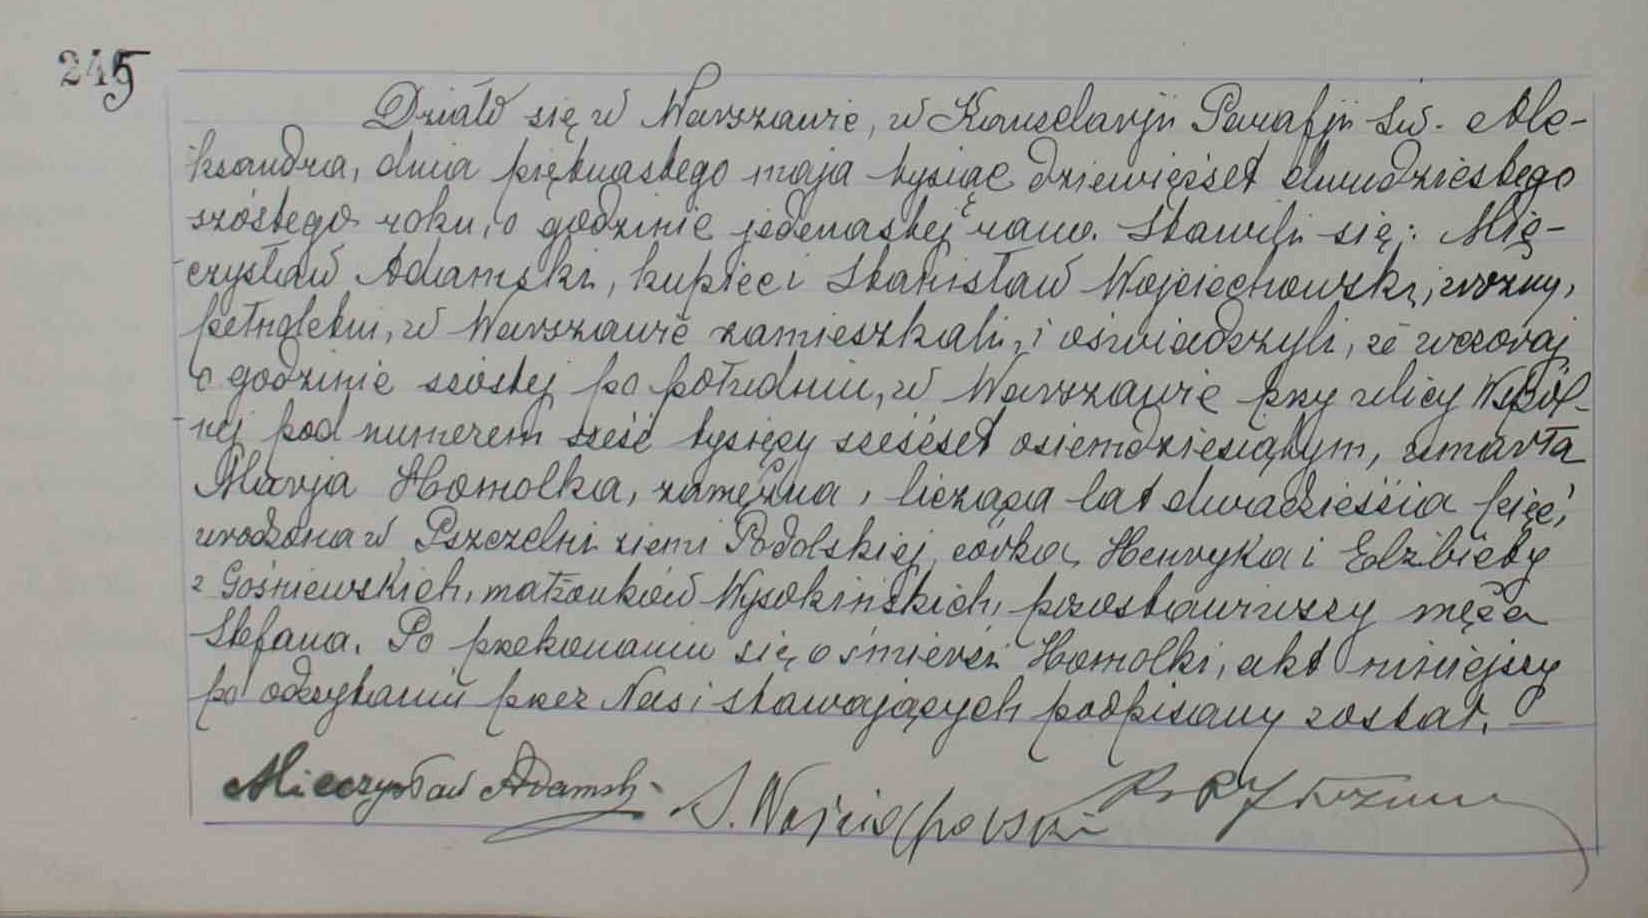 245
Działo się w Warszawie, w Kancelaryi Parafji Św. Ale-
ksandra, dnia piętnastego maja tysiąc dziewięćset dwudziestego
szóstego roku, o godzinie jedenastej rano. Stawili się: Mie-
czysław Adamski, kupiec i Stanisław Wojciechowski, woźny,
pełnoletni, w Warszawie zamieszkali, i oświadczyli, że wczoraj
o godzinie szóstej po południu, w Warszawie przy ulicy Wspól-
nej pod numerem sześć tysięcy sześćset osiemdziesiątym, zmarła
Marja Homolka, zamężna, licząca lat dwadzieścia pięć,
urodzona w Pszczelni ziemi Podolskiej, córka Henryka i Elżbiety
z Gośniewskich, małżonków Wysokińskich, pozostawiwszy męża
Stefana. Po przekonaniu się o śmierci Homolki, akt niniejszy
po odczytaniu przez Nas i stawających podpisany został. —
Mieczysław Adamski S. Wojciechowski